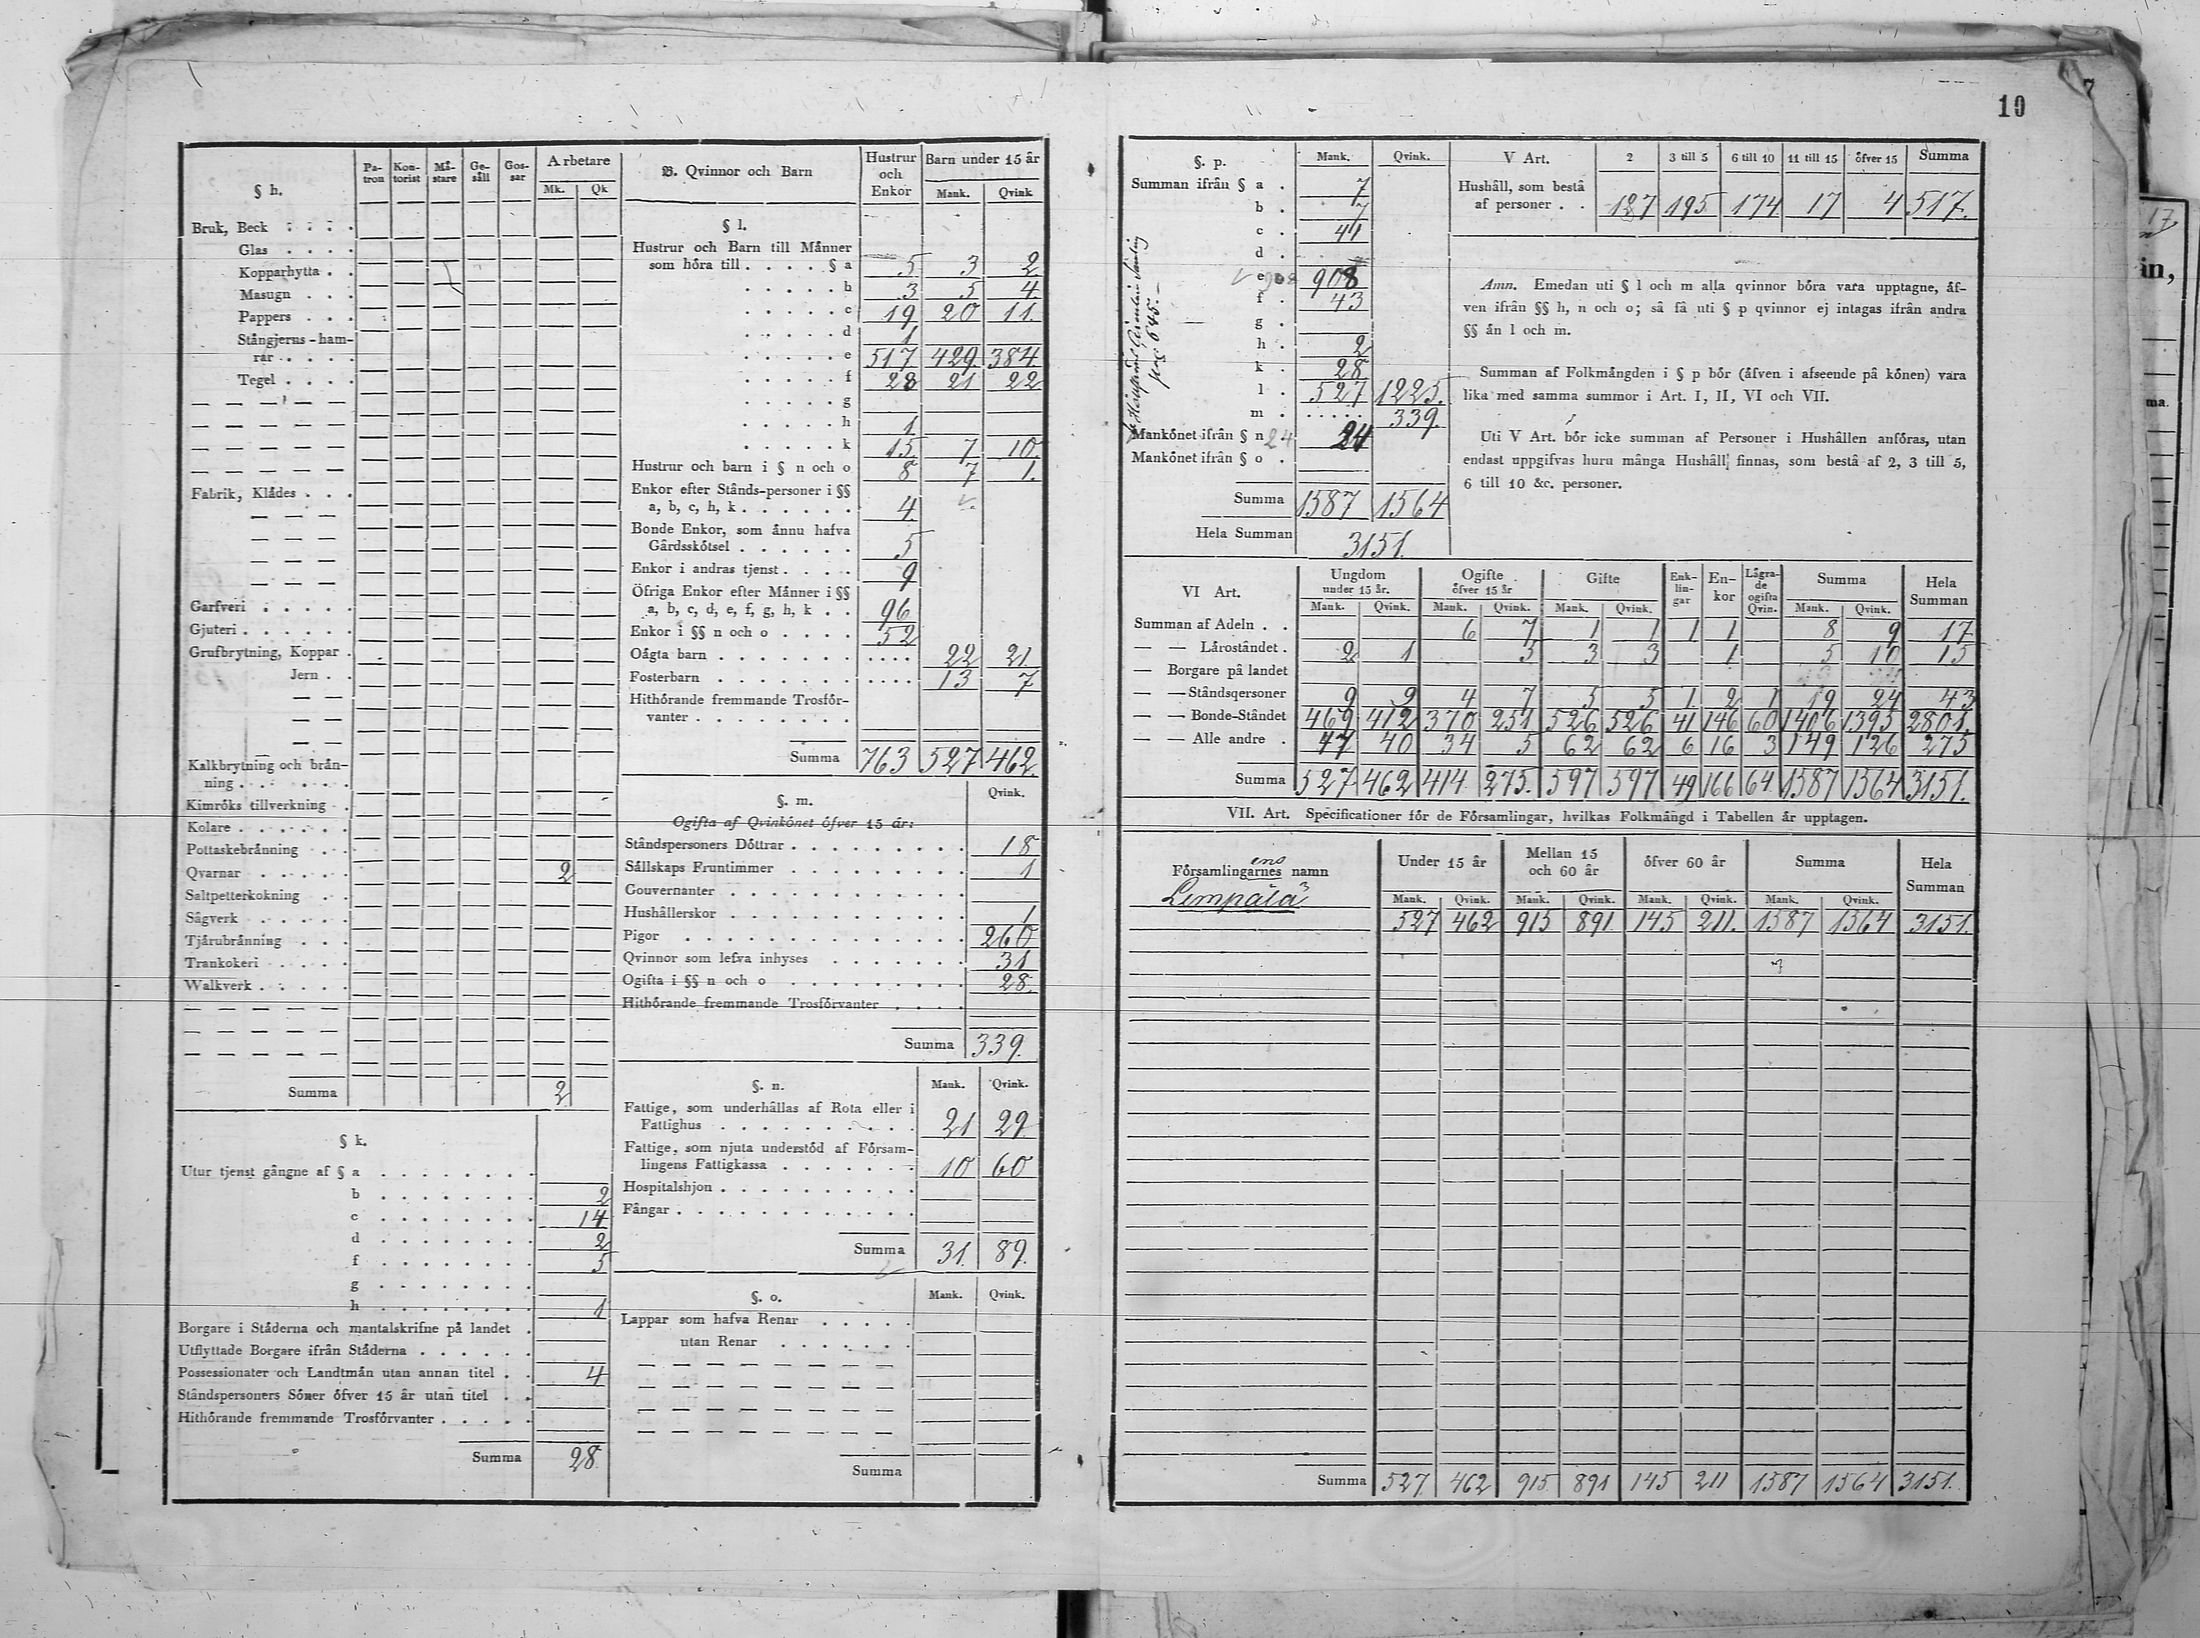 10
7
§ h.
Patron Kontorist Måstare Gesåll Gossar Arbetare
Mk. Qk
Bruk, Beck
Glas
Kopparhytta
Masugn
Pappers
Stångjerns-hamrar
Tegel
Fabrik, Klådes
Garfveri
Gjuteri
Grufbrytning, Koppar
Jern
Kalkbrytning och brånning
Kimróks tillverkning
Kolare
Pottaskebrånning
Qvarnar 2
Saltpetterkokning
Sågverk
Tjårubrånning
Trankokeri
Walkverk
Summa 2
§ k.
Utur tjenst gångne af § a
b 2
c 14
d 2
f 5
g
h 1
Borgare i Ståderna och mantalskrifne på landet
Utflyttade Borgare ifrån Ståderna
Possessionater och Landtmån utan annan titel 4
Ståndspersoners Sóner ófver 15 år utan titel
Hithórande fremmande Trosfórvanter
Summa 28
B. Qvinnor och Barn
Hustrur och Enkor Barn under 15 år
Mank. Qvink
§ l.
Hustrur och Barn till Månner
som hóra till § a 5 3 2
b 3 5 4
c 19 20 11.
d 1
e 517 429. 384.
f 28 21 22
g
h 1
k 15. 7 10.
Hustrur och barn i § n och o 8 7 1.
Enkor efter Stånds-personer i §§
a, b, c, h, k 4.
Bonde Enkor, som ånnu hafva
Gårdsskótsel 5
Enkor i andras tjenst 9
Öfriga Enkor efter Månner i §§
a, b, c, d, e, f, g, h, k 96
Enkor i §§ n och o 52
Oågta barn 22 21.
Fosterbarn 13 7
Hithórande fremmande Trosfór-
vanter
Summa 763 527 462.
§. m. Qvink.
Ogifta af Qvinkónet ófver 15 år:
Ståndspersoners Dóttrar 18
Sållskaps Fruntimmer 1
Gouvernanter
Hushållerskor 1
Pigor 260
Qvinnor som lefva inhyses 31
Ogifta i §§ n och o 28.
Hithórande fremmande Trosfórvanter
Summa 339.
§. n. Mank. Qvink.
Fattige, som underhållas af Rota eller i
Fattighus 21 29.
Fattige, som njuta understód af Fórsam-
lingens Fattigkassa 10 60
Hospitalshjon
Fångar
Summa 31. 89.
§. o. Mank. Qvink.
Lappar som hafva Renar
utan Renar
Summa
§. p. Mank. Qvink.
Summan ifrån § a 7
b 7
c 41
d
e 908 908
f 43
g
h 2
k 28
l 527 1225.
m 339.
Mankónet ifrån § n 24 24
Mankónet ifrån § o
Summa 1587 1564
Hela Summan 3151.
V Art. 2 3 till 5 6 till 10 11 till 15 ófver 15 Summa
Hushåll, som bestå
af personer 127 195 174 17 4 517.
Amn. Emedan uti § l och m alla qvinnor bóra vara upptagne, åf-
ven ifrån §§ h, n och o; så få uti § p qvinnor ej intagas ifrån andra
§§ ån l och m.
Summan af Folkmångden i § p bór (åfven i afseende på kónen) vara
lika med samma summor i Art. I, II, VI och VII.
Uti V Art. bór icke summan af Personer i Hushållen anfóras, utan
endast uppgifvas huru många Hushåll finnas, som bestå af 2, 3 till 5,
6 till 10 &c. personer.
VI Art. Ungdom under 15 år. Ogifte ófver 15 år Gifte Enklingar Enkor Lågrade ogifta Qvin. Summa Hela Summan
Mank. Qvink. Mank. Qvink. Mank. Qvink. Mank. Qvink.
Summan af Adeln 6 7 1 1 1 1 8 9 17
— — Låroståndet 2 1 5 3 3 1 5 10 15
— Borgare på landet
— — Ståndsqersoner 9 9 4 7 5 5 1 2 1 19 24 43
— — Bonde-Ståndet 469 412 370 251 526 526 41 146 60 1406 1395 2801.
— — Alle andre 47 40 34 5 62 62 6 16 3 149 126 275
Summa 527 462 414. 275. 597 597 49 166 64. 1587 1564 3151.
VII. Art. Specificationer fór de Fórsamlingar, hvilkas Folkmångd i Tabellen år upptagen.
Fórsamlingarnes namn Under 15 år Mellan 15 och 60 år ófver 60 år Summa Hela Summan
ens
Mank. Qvink. Mank. Qvink. Mank. Qvink. Mank. Qvink.
Lempälä 527 462 915 891 145 211. 1587 1564 3151.
Summa 527 462 915 891 145 211 1587 1564 3151.